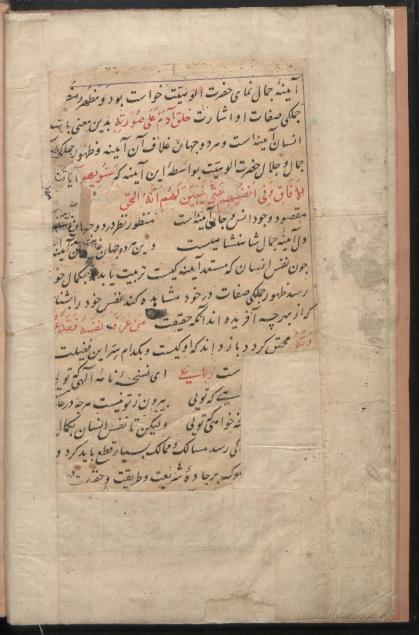 آینهٔ جمال نمای حضرت الوهیت خواست بود و مظهر و مظهر
جملگی صفات او اشارت خلق آدم علی صورته بدین معنی باشد
انسان آینه است و هر دو جهان غلاف آن آینه و ظهور جملگی
جمال و جلال حضرت الوهیت بواسطهٔ این آینه که سنریهم آیاتنا
فی الافاق و فی انفسهم حتی یتبین لهم انه الحق
مقصود وجود انس و جان آینه است منظور نظر در دو جهان آینه
دل آینهٔ جمال شاهنشاهیست وین هر دو جهان غلاف آن آینه
چون نفس انسان که مستعد آینه گیست تربیت یابد و بکمال خود
رسد ظهور جملگی صفات در خود مشاهده کند نفس خود را بشناسد
که او از بهر چه آفریده اند آنکه حقیقت من عرف نفسه فقد عرف
ربه محقق گردد باز داند که او کیست و بکدام سر این فضیلت
ست رباعی ای نسخهٔ نامهٔ الهی که تویی
یی که تویی بیرون ز تو نیست هرچه در عا
نه خواهی که تویی ولیکن تا نفس انسان بکمال
گی رسد مسالک و ممالک بسیار قطع باید کرد و
جز بر جادهٔ شریعت و طریقت و حقیقت